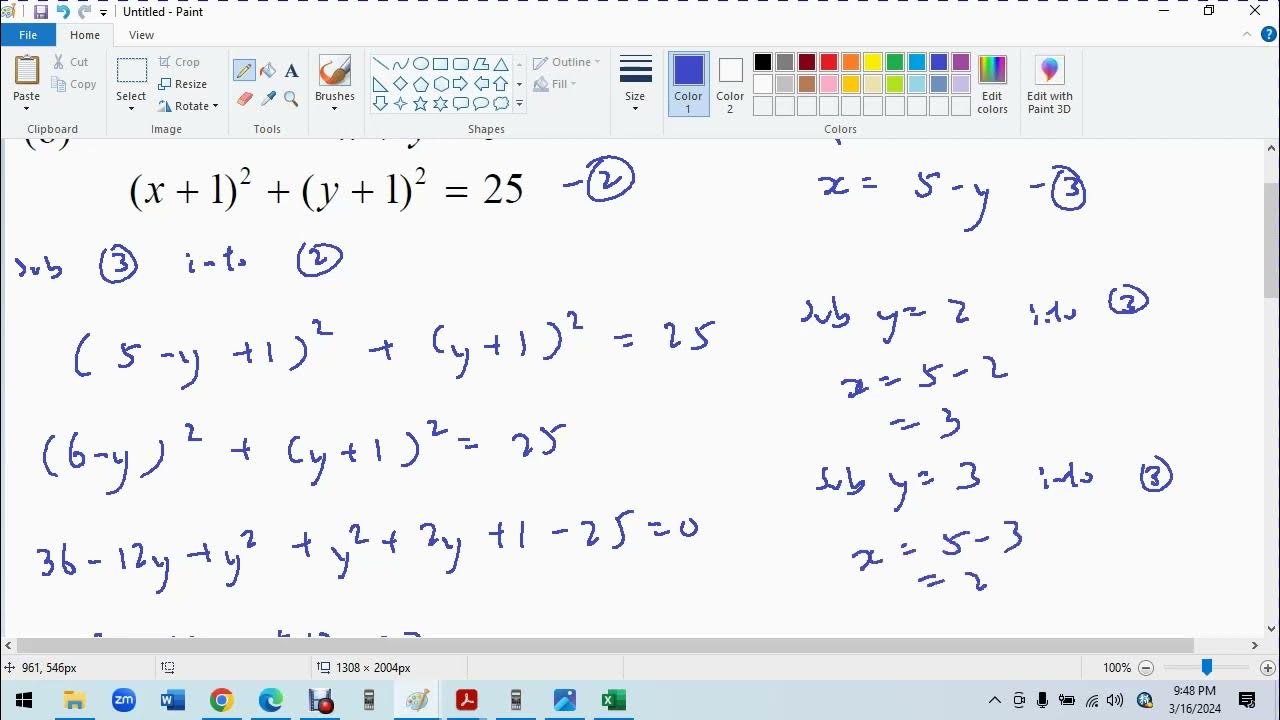 Untitled - Paint
File Home View
Paste Cut Copy Select Crop Resize Rotate A Brushes Outline Fill Size Color 1 Color 2 Edit colors Edit with Paint 3D
Clipboard Image Tools Shapes Colors
(x + 1)² + (y + 1)² = 25 - ②
x = 5 - y - ③
sub ③ into ②
(5 - y + 1)² + (y + 1)² = 25
(6 - y)² + (y + 1)² = 25
36 - 12y + y² + y² + 2y + 1 - 25 = 0
sub y = 2 into ③
x = 5 - 2
= 3
sub y = 3 into ③
x = 5 - 3
= 2
961, 546px 1308 × 2004px 100%
zm W X
9:48 PM
3/16/2024